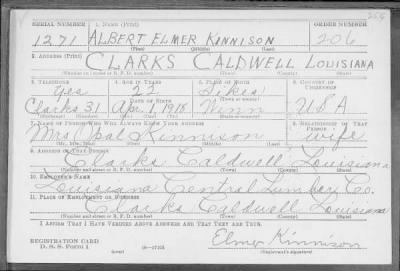 SERIAL NUMBER 1. NAME (Print) ORDER NUMBER
1271 ALBERT ELMER KINNISON 206
(First) (Middle) (Last)
2. ADDRESS (Print)
CLARKS CALDWELL LOUISIANA
(Number and street or R. F. D. number) (Town) (County) (State)
3. TELEPHONE 4. AGE IN YEARS 5. PLACE OF BIRTH 6. COUNTRY OF CITIZENSHIP
Yes 22 Sikes
DATE OF BIRTH (Town or county)
Clarks 31 Apr 1 1918 Winn USA
7. NAME OF PERSON WHO WILL ALWAYS KNOW YOUR ADDRESS 8. RELATIONSHIP OF THAT PERSON
Mrs Opal Kinnison wife
(Mr., Mrs., Miss) (First) (Middle) (Last)
9. ADDRESS OF THAT PERSON
Clarks Caldwell Louisiana
(Number and street or R. F. D. number) (Town) (County) (State)
10. EMPLOYER'S NAME
Louisiana Central Lumber Co.
11. PLACE OF EMPLOYMENT OR BUSINESS
Clarks Caldwell Louisiana
(Number and street or R. F. D. number) (Town) (County) (State)
I AFFIRM THAT I HAVE VERIFIED ABOVE ANSWERS AND THAT THEY ARE TRUE.
REGISTRATION CARD
D. S. S. Form 1 Elmer Kinnison
(over) (Registrant's signature)